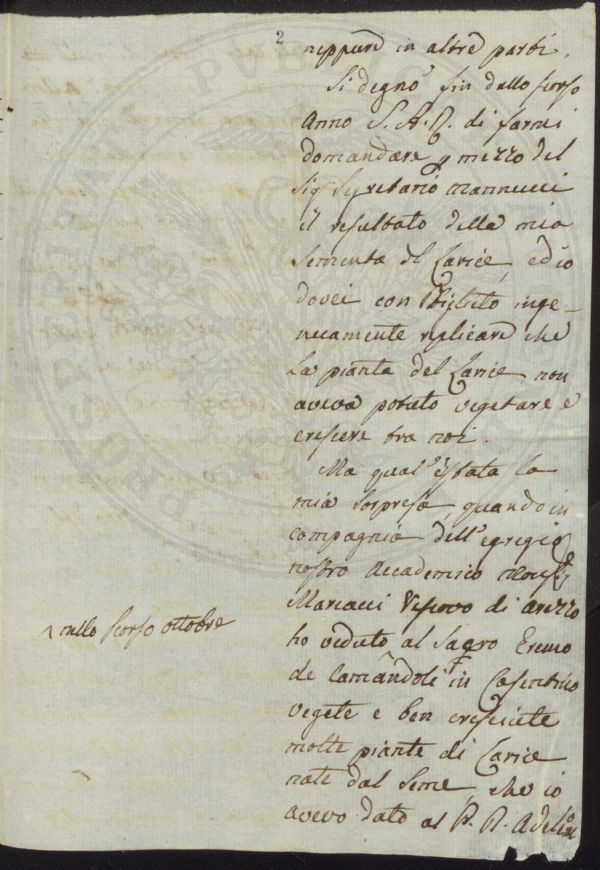 2
neppure in altre parti.
Si degnò fin dallo scorso
Anno S. A. R. di farmi
domandare p mezzo del
Sig.r Segretario Mannucci
il resultato della mia
sementa del Larice, ed io
dovei con Biglietto inge-
nuamente replicare che
la pianta del Larice non
aveva potuto vegetare e
crescere tra noi.
Ma qual'è stata la
mia sorpresa, quando in
compagnia dell'egregio
nostro Accademico Mons.r
Marcacci Vescovo di Arezzo
^ nello scorso ottobre
ho veduto al Sagro Eremo
de Camandoli in Casentino
vegete e ben cresciute
molte piante di Larice
nate dal seme, che io
avevo dato al P. R. Adel